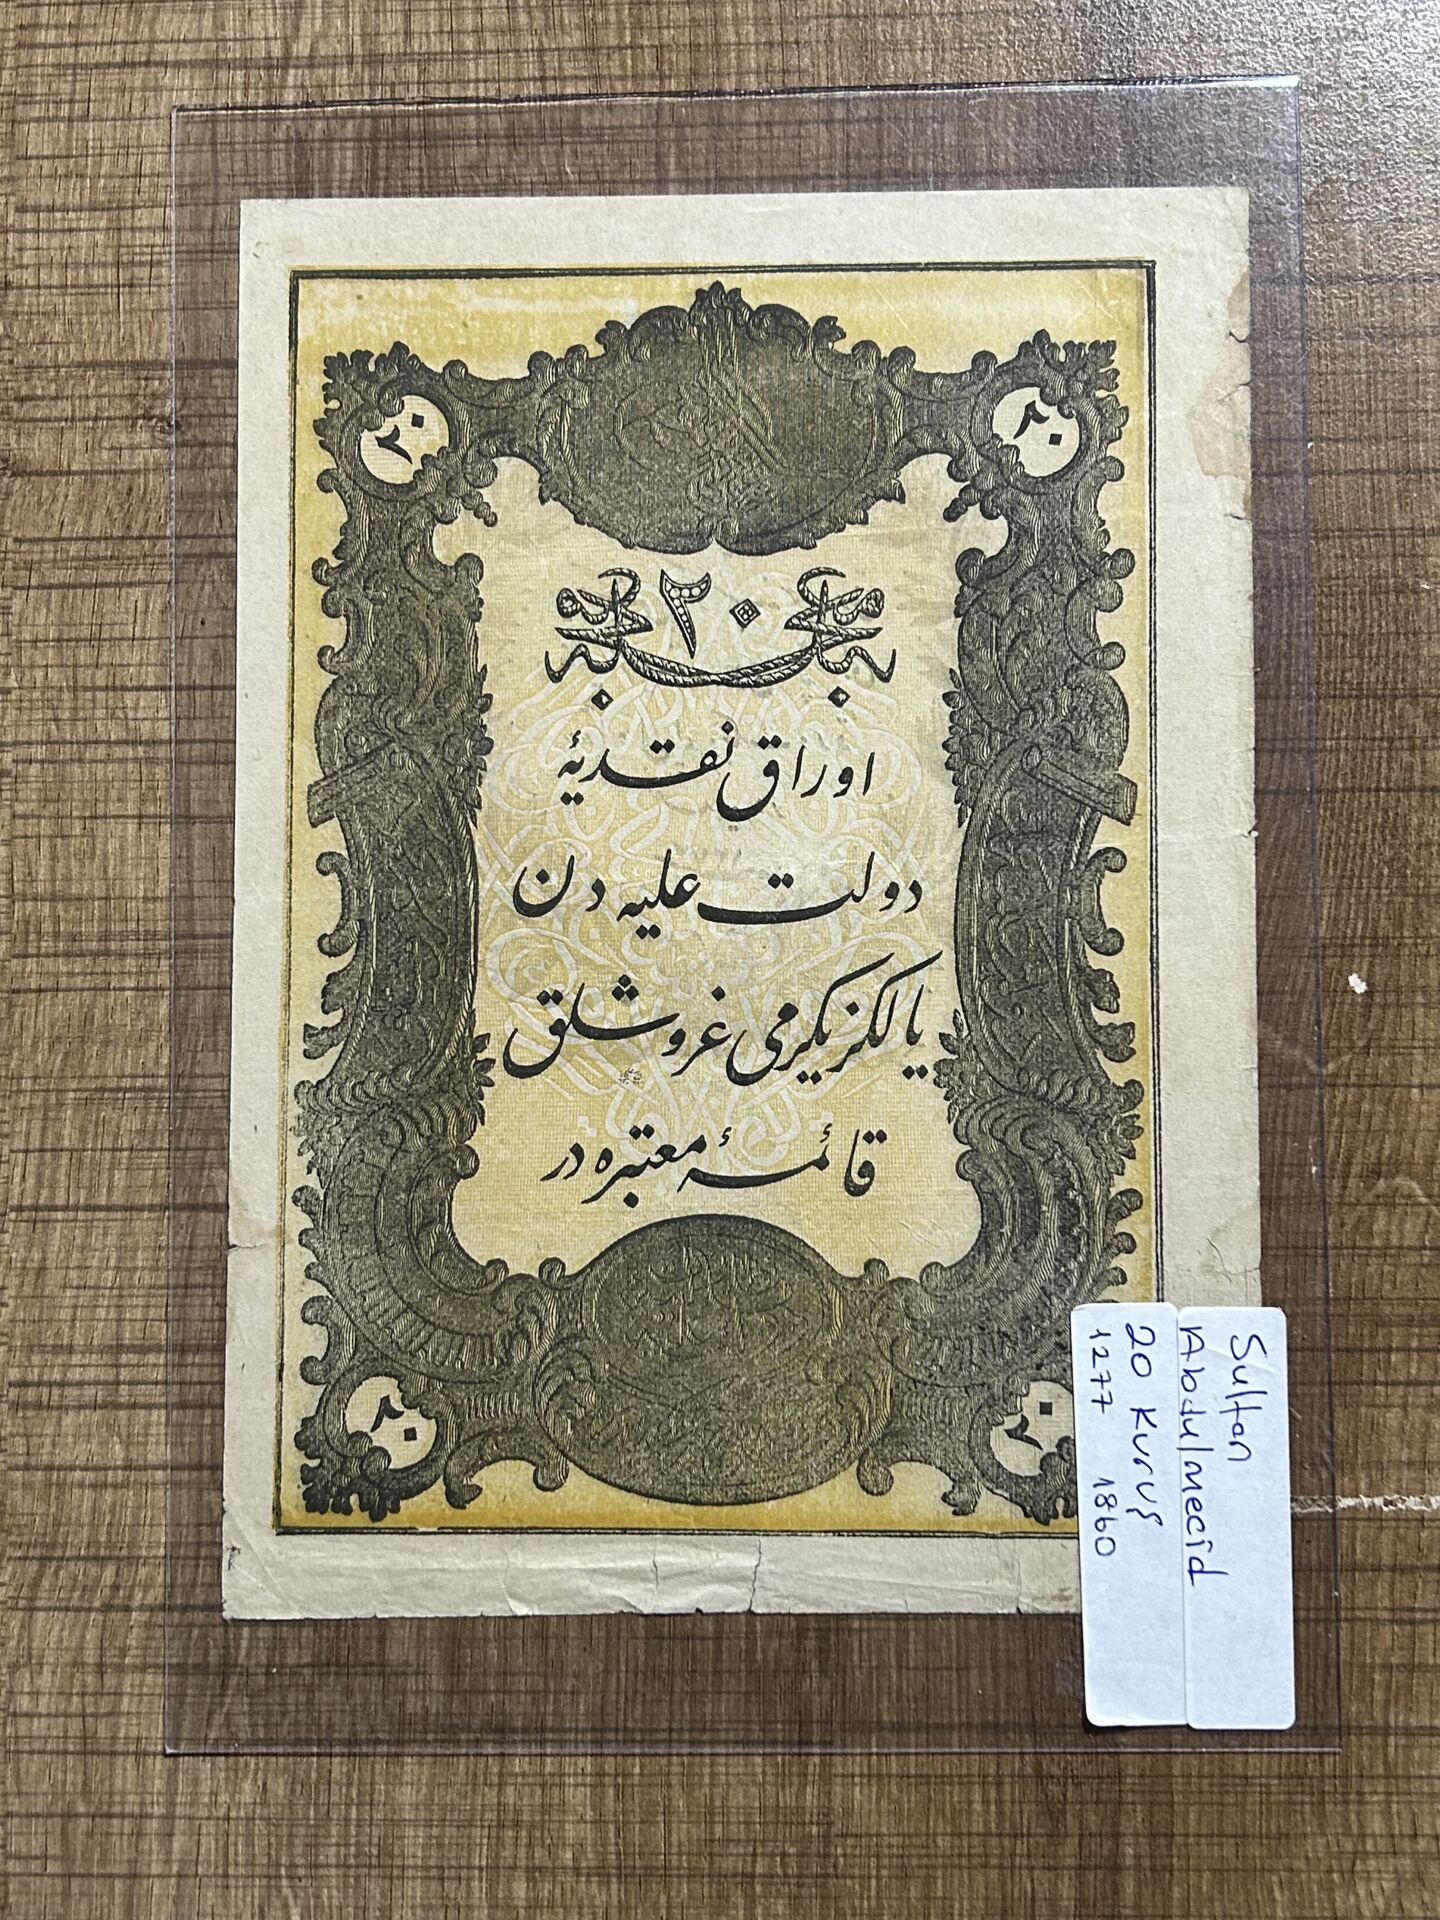 ٢٠ ٢٠
٢٠
اوراق نقدیۀ
دولت علیه دن
یالکز یکرمی غروشلق
قائمۀ معتبره در
٢٠ ٢٠
Sultan
Abdulmecîd
20 Kuruş
1277 1860